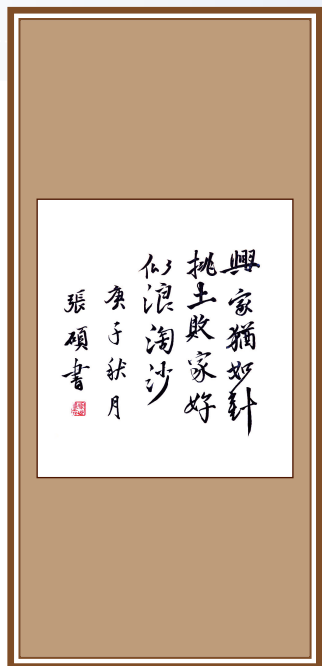 興家猶如針
挑土敗家好
似浪淘沙
庚子秋月
張碩書